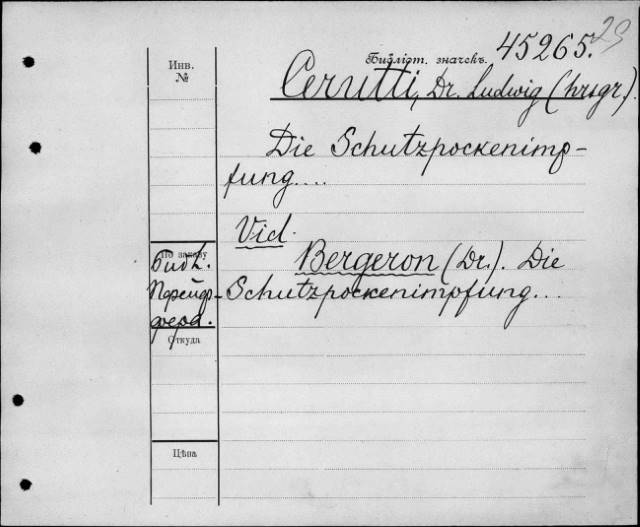 29
Инв.
№
Библіот. значекъ. 45265.
Cerutti, Dr. Ludwig (hrsgr.).
Die Schutzpockenimp-
fung....
Vid.
По заказу
Библ.
Пфейф-
фера.
Bergeron (Dr.). Die
Schutzpockenimpfung...
Откуда
Цѣна